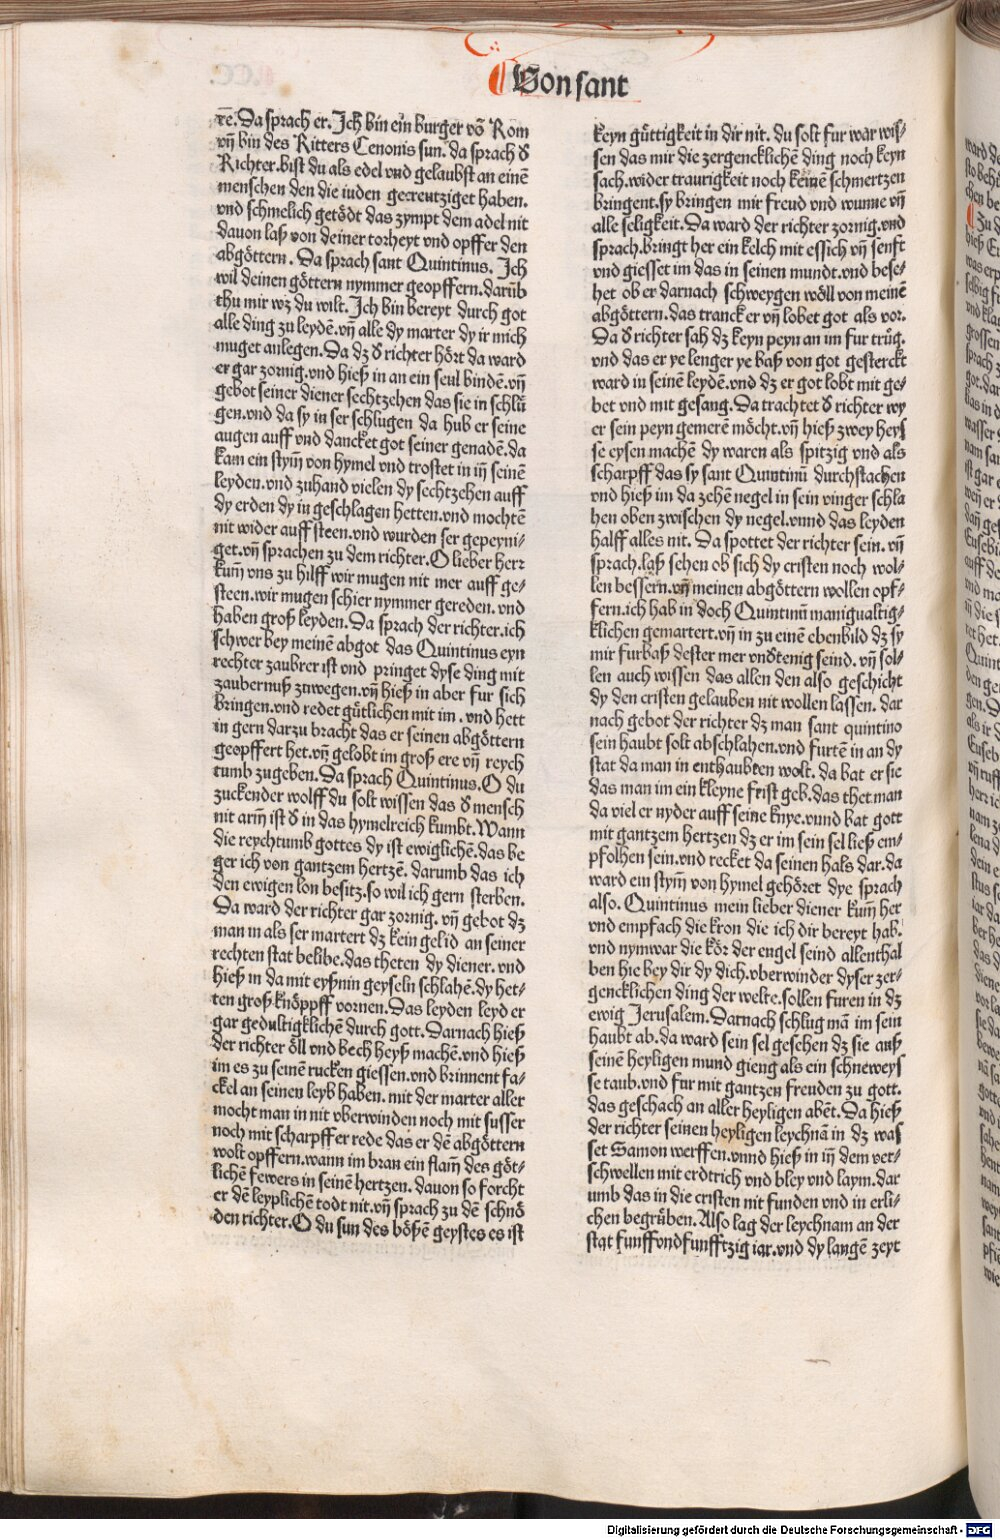 Von sant
re. Da sprach er. Ich bin ein burger võ Rom
vñ bin des Ritters Cenonis sun. da sprach ď
Richter. bist du als edel vnd gelaubst an einē
menschen den die iuden gecreutziget haben.
vnd schmelich getödt das zympt dem adel nit
dauon laß von deiner torheyt vnd opffer den
abgöttern. Da sprach sant Quintinus. Ich
wil deinen göttern nymmer geopffern. darūb
thu mir wz du wilt. Ich bin bereyt durch got
alle ding zu leydē. vñ alle dy marter dy ir mich
muget anlegen. Da dz ď richter hört da ward
er gar zornig. vnd hieß in an ein seul bindē. vñ
gebot seiner diener sechtzehen das sie in schlů
gen. vnd da sy in ser schlugen da hub er seine
augen auff vnd dancket got seiner genadē. da
kam ein stym̄ von hymel vnd trostet in in̄ seinē
leyden. vnd zuhand vielen dy sechtzehen auff
dy erden dy in geschlagen hetten. vnd mochtē
nit wider auff steen. vnd wurden ser gepeyni-
get. vñ sprachen zu dem richter. O lieber herr
kum̄ vns zu hilff wir mugen nit mer auff ge-
steen. wir mugen schier nymmer gereden. vnd
haben groß leyden. Da sprach der richter. ich
schwer bey meinē abgot das Quintinus eyn
rechter zaubrer ist vnd pringet dyse ding mit
zaubernuß zuwegen. vñ hieß in aber fur sich
Bringen. vnd redet gütlichen mit im. vnd hett
in gern darzu bracht das er seinen abgöttern
geopffert het. vñ gelobt im groß ere vñ reych
tumb zugeben. Da sprach Quintinus. O du
zuckender wolff du solt wissen das ď mensch
nit arm̄ ist ď in das hymelreich kumbt. Wann
die reychtumb gottes dy ist ewiglichē. das be
ger ich von gantzem hertzē. darumb das ich
den ewigen lon besitz. so wil ich gern sterben.
Da ward der richter gar zornig. vñ gebot dz
man in als ser martert dz kein gelid an seiner
rechten stat belibe. das theten dy diener. vnd
hieß in da mit eyßnin geyseln schlahē. dy het-
ten groß knöppff vornen. Das leyden leyd er
gar gedultigklichen durch gott. Darnach hieß
der richter öll vnd bech heyß machē. vnd hieß
im es zu seinē rucken giessen. vnd brinnent fa-
ckel an seinen leyb haben. mit der marter aller
mocht man in nit vberwinden noch mit susser
noch mit scharpffer rede das er dē abgöttern
wolt opffern. wann im bran ein flam̄ des göt-
lichē fewers in seinē hertzen. dauon so forcht
er dē leyplichē todt nit. vñ sprach zu dē schnö
den richter. O du sun des bößē geystes es ist
keyn gůttigkeit in dir nit. du solt fur war wis-
sen das mir die zergencklichē ding noch keyn
sach. wider traurigkeit noch keinē schmertzen
bringent. sy bringen mir freud vnd wunne vñ
alle seligkeit. Da ward der richter zornig. vnd
sprach. bringt her ein kelch mit essich vñ senft
vnd giesset im das in seinen mundt. vnd bese-
het ob er darnach schweygen wöll von meinē
abgöttern. das tranck er vñ lobet got als vor.
Da ď richter sah dz keyn peyn an im fur trůg.
vnd das er ye lenger ye baß von got gesterckt
ward in seinē leydē. vnd dz er got lobt mit ge-
bet vnd mit gesang. Da trachtet ď richter wy
er sein peyn gemerē möcht. vñ hieß zwey heys
se eysen machē dy waren als spitzig vnd als
scharpff das sy sant Quintinū durchstachen
vnd hieß im da zehē negel in sein vinger schla
hen oben zwischen dy negel. vnnd das leyden
halff alles nit. Da spottet der richter sein. vñ
sprach. laß sehen ob sich dy cristen noch wol-
len bessern. vñ meinen abgöttern wollen opf-
fern. ich hab in doch Quintinū manigualtig-
klichen gemartert. vñ in zu einē ebenbild dz sy
mir furbaß dester mer vnďtenig seind. vñ sol-
len auch wissen das allen den also geschicht
dy den cristen gelauben nit wollen lassen. dar
nach gebot der richter dz man sant quintino
sein haubt solt abschlahen. vnd furtē in an dy
stat da man in enthaubten wolt. da bat er sie
das man im ein kleyne frist geb. das thet man
da viel er nyder auff seine knye. vnnd bat gott
mit gantzem hertzen dz er im sein sel ließ em-
pfolhen sein. vnd recket da seinen hals dar. da
ward ein stym̄ von hymel gehöret dye sprach
also. Quintinus mein lieber diener kum̄ her
vnd empfach die kron die ich dir bereyt hab.
vnd nymwar die kör der engel seind allenthal
ben hie bey dir dy dich. vberwinder dyser zer-
gencklichen ding der welte. sollen furen in dz
ewig Jerusalem. Darnach schlug mā im sein
haubt ab. da ward sein sel gesehen dz sie auß
seinē heyligen mund gieng als ein schneweys
se taub. vnd fur mit gantzen freuden zu gott.
das geschach an aller heyligen abēt. Da hieß
der richter seinen heyligen leychnā in dz was
set Samon werffen. vnnd hieß in in̄ dem ver-
schwellen mit erdtrich vnd bley vnd laym. dar
umb das in die cristen nit funden vnd in erli-
chen begrůben. Also lag der leychnam an der
stat funffvndfunfftzig iar. vnd dy langē zeyt
Digitalisierung gefördert durch die Deutsche Forschungsgemeinschaft - DFG